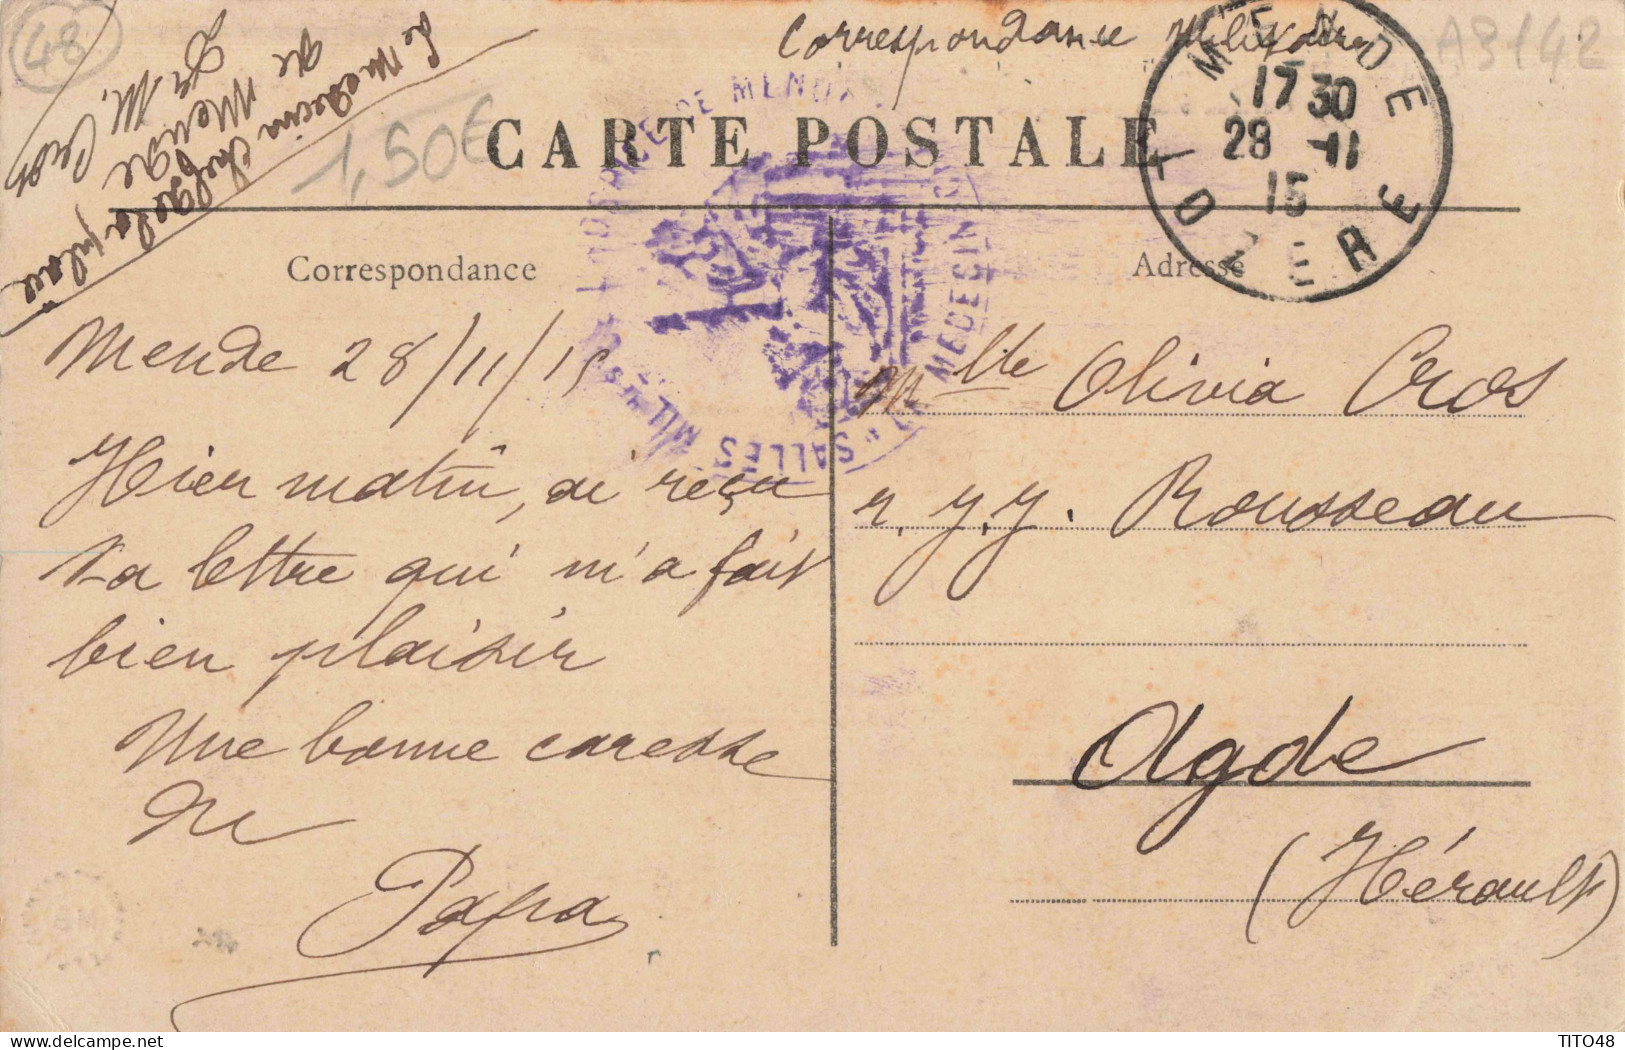 48
Le Médecin Chef de la place
de Mende
Dr M. Cros
1,50€
Correspondance Militaire
A3142
CARTE POSTALE
MENDE
17 30
28 -11
15
LOZERE
HOSPICE DE MENDE
SALLES MIL
MEDECIN
Correspondance
Adresse
Mende 28/11/15
Hier matin, ai reçu
ta lettre qui m'a fait
bien plaisir
Une bonne caresse
de
Papa
Mlle Olivia Cros
r. J.J. Rousseau
Agde
(Hérault)
TITO48